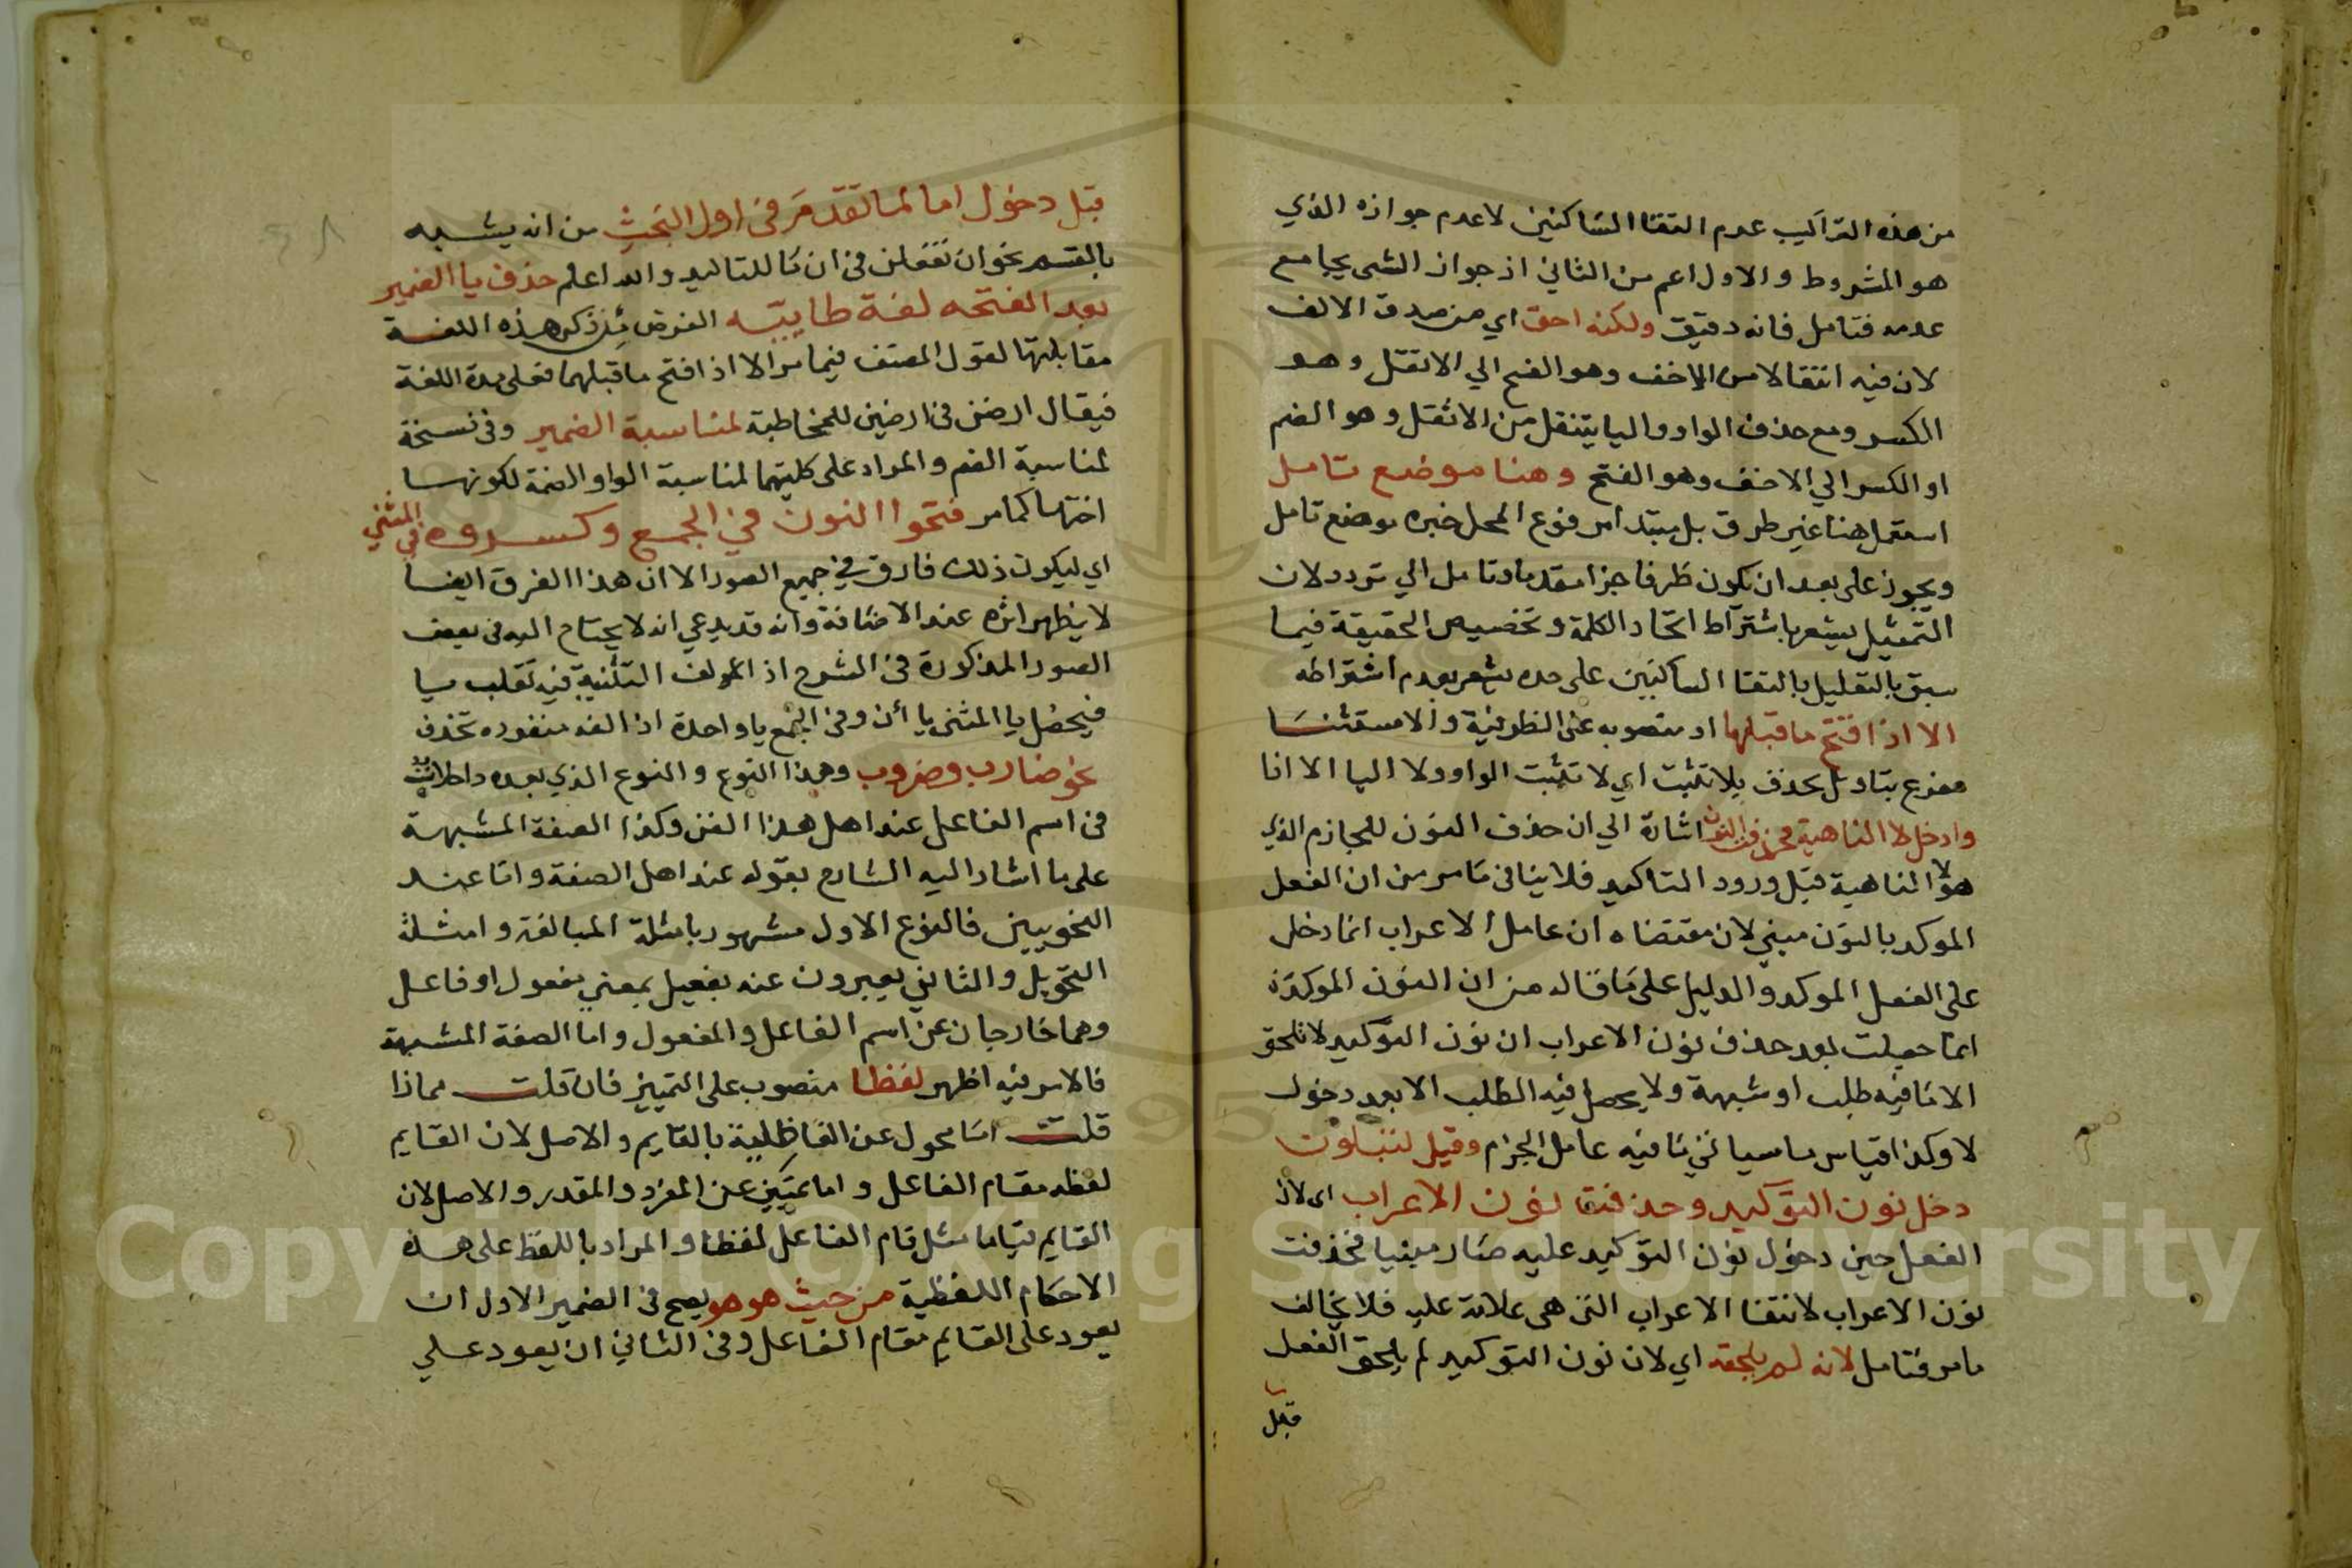 من هذه التراكيب عدم التقا الساكنين لا عدم جوازه الذي
هو المشروط والاول اعم من الثاني اذ جواز الشى يجامع
عدمه فتامل فانه دقيق ولكنه احق اي من حذف الالف
لان فيه انتقالا من الاخف وهو الفتح الي الاثقل وهو
الكسر ومع حذف الواو واليا ينتقل من الاثقل وهو الضم
او الكسر الي الاخف وهو الفتح وهنا موضع تامل
استعمل هنا غير ظرف بل مبتدا مرفوع المحل خبره موضع تامل
ويجوز على بعد ان يكون ظرفا خبرا مقدما وتامل الي تردد لان
التمثيل يشعر باشتراط اتحاد الكلمة وتخصيص الحقيقة فيما
سبق بالتعليل بالتقا الساكنين على حده يشعر بعدم اشتراطه
الا اذا افتح ما قبلها او منصوبه على الظرفية والاستثنا
مفرغ بتاويل يحذف بلا تثبت اي لا تثبت الواو ولا اليا الا اذا
وادخل لا الناهية فحذفت النون اشارة الي ان حذف النون للجازم الذي
هو لا الناهية قبل ورود التاكيد فلا ينافى ما مر من ان الفعل
الموكد بالنون مبني لان مقتضاه ان عامل الاعراب انما دخل
على الفعل الموكد والدليل على ما قاله من ان النون الموكدة
انما حصلت بعد حذف نون الاعراب ان نون التوكيد لا تلحق
الا ما فيه طلب او شبهه ولا يحصل فيه الطلب الا بعد دخول
لا وكذا قياس ما سياتي فيما فيه عامل الجزم وقيل لتبلون
دخل نون التوكيد وحذفت نون الاعراب اى لان
الفعل حين دخول نون التوكيد عليه صار مبنيا فحذفت
نون الاعراب لانتفا الاعراب التى هى علامة عليه فلا يخالف
ما مر فتامل لانه لم يلحقه اي لان نون التوكيد لم يلحق الفعل
قبل
قبل دخول اما لما تقدم فى اول البحث من انه يشبه
بالقسم نحو ان تفعلن فى ان ما للتاكيد والله اعلم حذف يا الضمير
بعد الفتحه لغة طاييه الغرض من ذكر هذه اللغة
مقابلتها لقول المصنف فيما مر الا اذ افتح ما قبلهما فعلى هذه اللغة
فيقال ارضن فى ارضين للمخاطبة لمناسبة الضمير وفى نسخة
لمناسبة الضم والمراد على كليهما لمناسبة الواو الضمة لكونها
اختها كما مر فتحوا النون في الجمع وكسروه في المثني
اي ليكون ذلك فارق في جميع الصور الا ان هذا الفرق ايضا
لا يظهر اثره عند الاضافة وانه قد يدعي انه لا يحتاج اليه فى بعض
الصور المذكورة فى الشرح اذ الف التثنية فيه تقلب يا
فيحصل يا المثنى ياأن وفى الجمع يا واحدة اذ الفه منفرده تحذف
نحو ضارب وضروب وهذا النوع والنوع الذي بعده داخلان
فى اسم الفاعل عند اهل هذا الفن وكذا الصفة المشبهة
على ما اشار اليه الشارح بقوله عند اهل الصنعة واما عند
النحويين فالنوع الاول مشهور بامثلة المبالغة وامثلة
التحويل والثاني يعبرون عنه بفعيل بمعني مفعول او فاعل
وهما خارجان عن اسم الفاعل والمفعول واما الصفة المشبهة
فالامر فيه اظهر لفظا منصوب على التمييز فان قلت مماذا
قلت اما محول عن الفاعلية بالقايم والاصل لان القايم
لفظه مقام الفاعل واما تمييز عن المفرد والمقدر والاصل لان
القايم قياما مثل قام الفاعل لفظا والمراد باللفظ على هذه
الاحكام اللفظية من حيث هو هو يصح فى الضمير الاول ان
يعود على القايم مقام الفاعل وفى الثاني ان يعود علي
Copyright © King Saud University